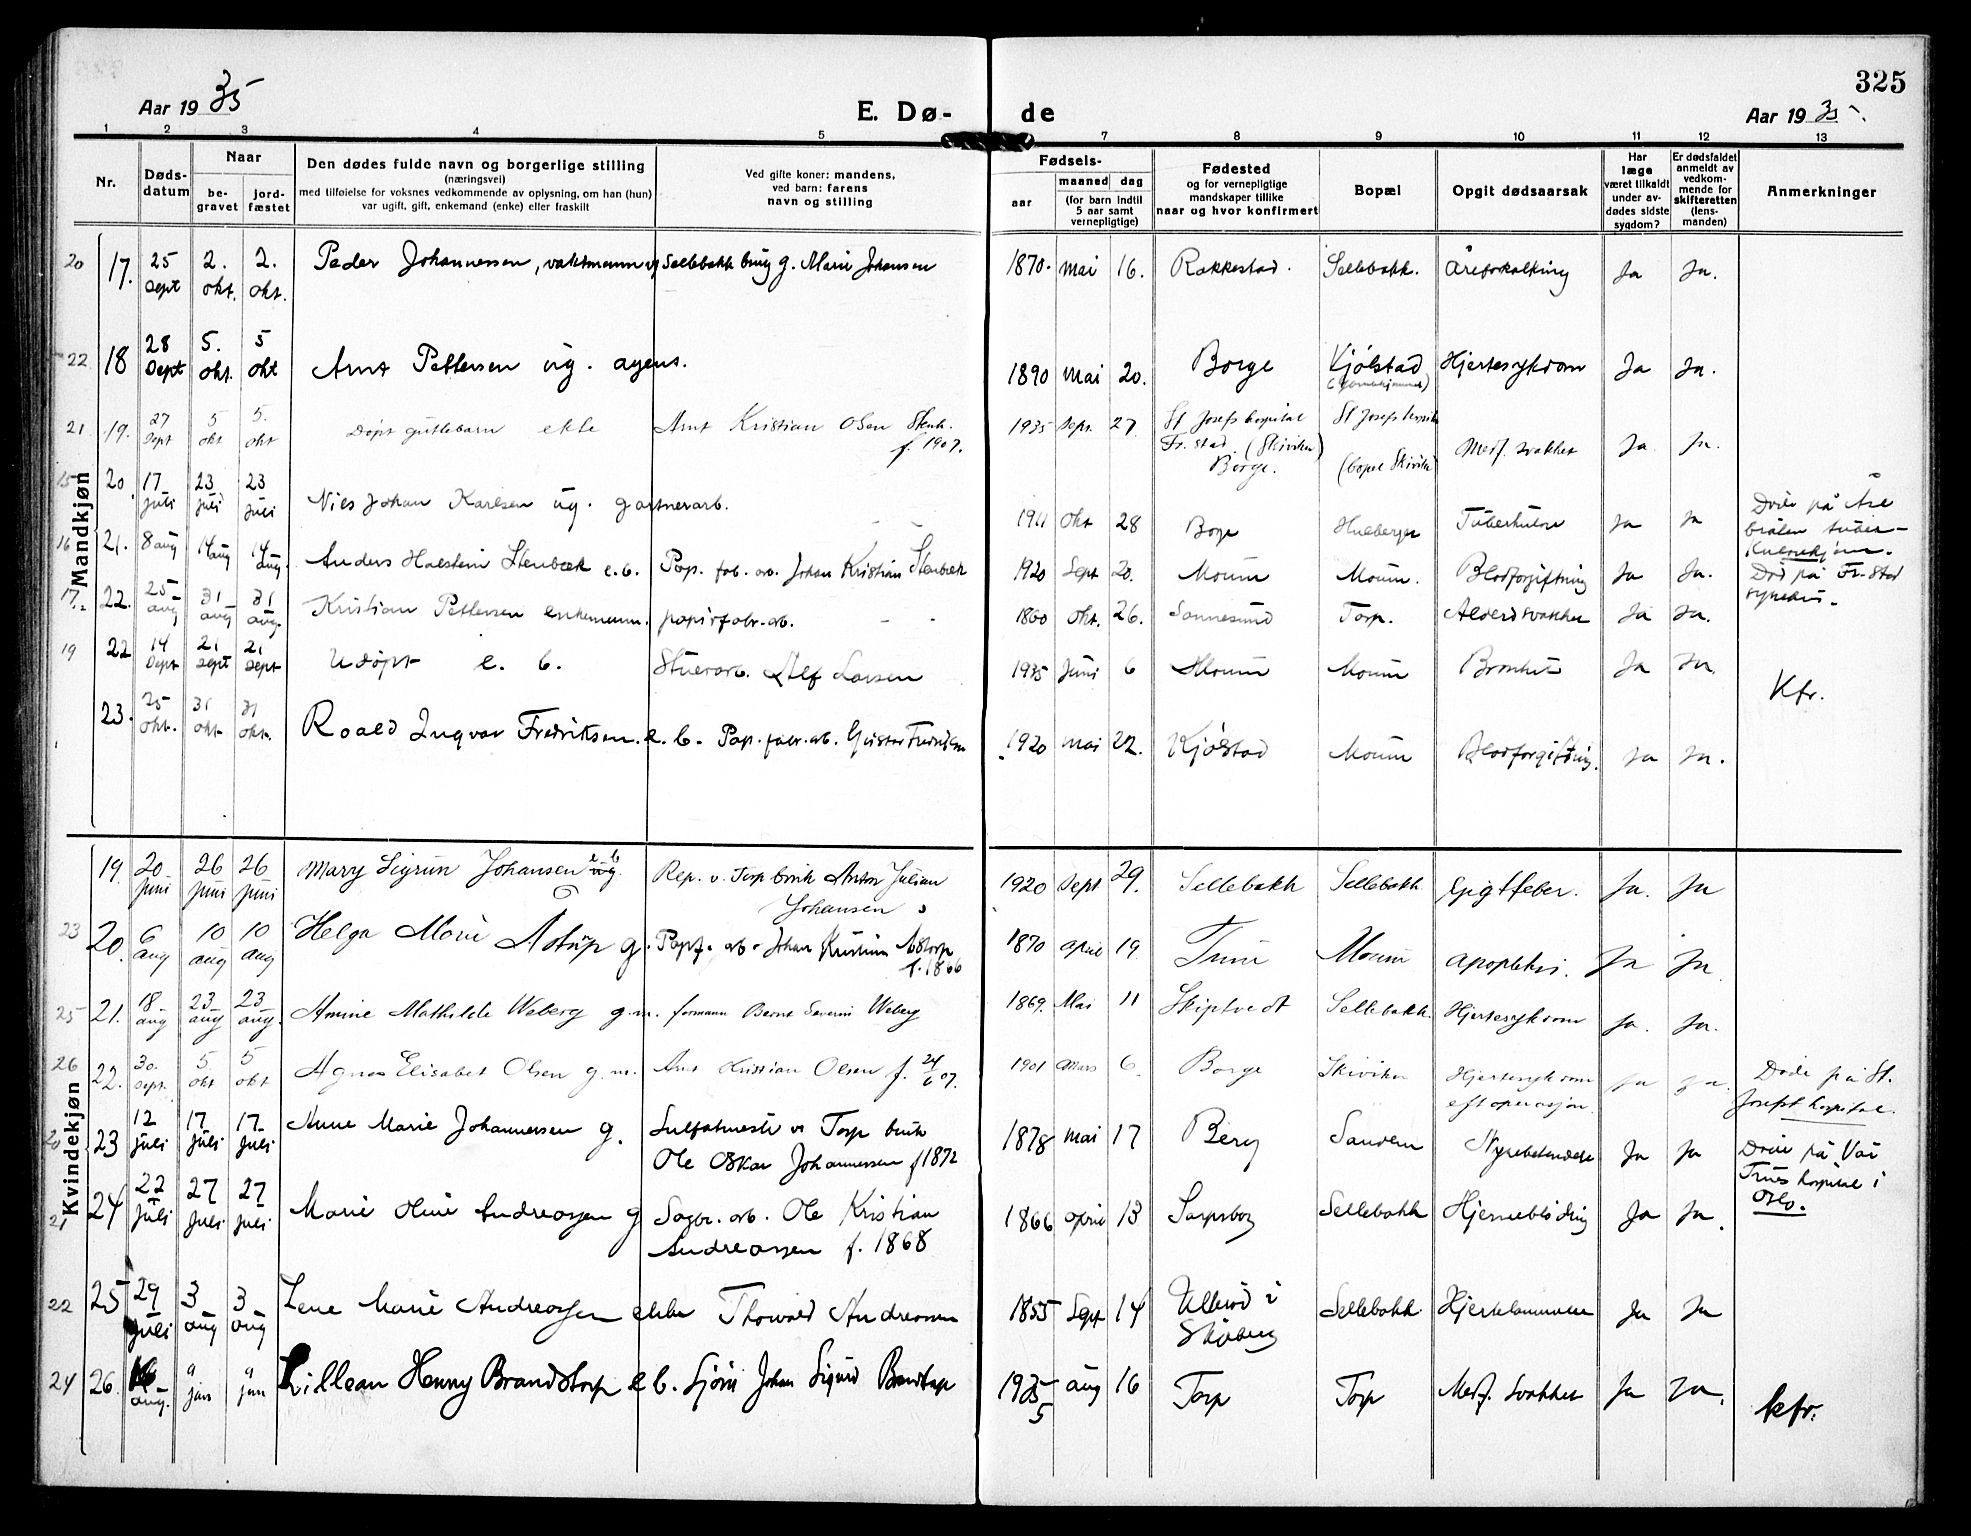 325
Aar 1935
E. Dø-
de
Aar 1935.
1 2 3 4 5 7 8 9 10 11 12 13
Nr.
Døds-
datum
Naar
be-
gravet
jord-
fæstet
Den dødes fulde navn og borgerlige stilling
(næringsvei)
med tilføielse for voksnes vedkommende av oplysning, om han (hun)
var ugift, gift, enkemand (enke) eller fraskilt
Ved gifte koner: mandens,
ved barn: farens
navn og stilling
Fødsels-
aar
maaned dag
(for barn indtil
5 aar samt
vernepligtige)
Fødested
og for vernepligtige
mandskaper tillike
naar og hvor konfirmert
Bopæl
Opgit dødsaarsak
Har
læge
været tilkaldt
under av-
dødes sidste
sygdom?
Er dødsfaldet
anmeldt av
vedkom-
mende for
skifteretten
(lens-
manden)
Anmerkninger
Mandkjøn
20 17. 25 sept 2. okt. 2. okt. Peder Johannessen, vaktmann v/ Sellebakk brug g. Marie Johansen 1870. mai 16. Rakkestad. Sellebakk. Åreforkalkning Ja Ja.
22 18 28 sept 5. okt. 5 okt Arnt Pettersen ug. agent. 1890 mai 20. Borge Kjølstad Hjertesykdom Ja Ja.
21 19. 27 sept 5 okt 5. okt Døpt guttebarn ekte Arnt Kristian Olsen f. 1907. 1935 sept. 27 St Josefs hospital Fr.stad (Skiviken) Borge. St Josefs (bopel Skiviken) Medf. svakhet Ja Ja.
15 20. 17 juli 23 juli 23 juli Nils Johan Karlsen ug. gartnerarb. 1911 okt 28 Borge Tuberkulose Ja Ja Døde på
16 21. 8 aug 14 aug 14 aug. Anders Holstein Stenbæk e.b. Pap. fab. arb. Johan Kristian Stenbæk 1920 Sept 20. Moum Moum. Blodforgiftning Ja Ja. Død på Fr.stad sykehus.
17 22. 25 aug 31 aug 31 aug. Kristian Pettersen enkemann. papirfabr. arb. 1860 okt. 26. Sannesund Torp. Alderdsvakhet Ja Ja.
19 22 14 sept 21 sept 21 sept Udøpt e. b. Stuerarb. Alf Larsen 1935 Juni 6 Moum Moum Bronkit Ja Ja. Kfr.
23. 25 okt. 31 okt. 31 okt. Roald Ingvar Fredriksen. e. b. Pap. fabr. arb. Gustav Fredriksen 1920 mai 22. Kjølstad Moum Blodforgiftning. Ja Ja.
Kvindekjøn
19. 20 juni 26 juni 26 juni Mary Sigrun Johansen e b Rep. v. Torp bruk Anton Julian Johansen 1920 sept 29. Sellebakk Sellebakk Gigtfeber. Ja. Ja
23 20. 6 aug 10 aug 10 aug Helga Marie Astorp g. Papf. arb. Johan Kristian Astorp f. 1866 1870 april 19. Tune Moum apopleksi. Ja Ja.
25 21. 18 aug 23 aug 23 aug. Amine Mathilde Weberg g.m. formann Bernt Severin Weberg 1869. Mai 11 Skiptvedt Sellebakk. Hjertesykdom Ja. Ja.
26 22. 30. sept. 5 okt 5 okt Agnes Elisabet Olsen g.m. Arnt Kristian Olsen f. 24/6 07. 1901 mars 6. Borge Skiviken Hjertesykdom eft operasjon. Ja Ja. Døde på St. Josefs hospital.
20 23 12 juli 17 juli 17. juli Anne Marie Johannessen g. Sulfatmester v. Torp bruk Ole Oskar Johannessen f 1872 1878 mai 17 Berg Sandem Nyrebetendelse Ja Ja Døde på Vår Frues hospital i Oslo.
21 24 22 juli 27 juli 27 juli Marie Oline Andreassen g Sagbr. arb. Ole Kristian Andreassen f. 1868 1866 april 13 Sarpsborg Sellebakk Hjerneblødning Ja Ja.
22 25 29 juli 3 aug 3 aug Lene Marie Andreassen enke Thorvald Andreassen 1855 Sept 14 Ullerød i Skjeberg Sellebakk Hjertelammelse Ja Ja
24 26. 16 aug. " jan " jan Lillean Henny Brandstorp e b. Sjøm Johan Sigurd Brandstorp 1935 5 aug 16 Torp Torp Medf. svakhet Ja Ja. kfr.